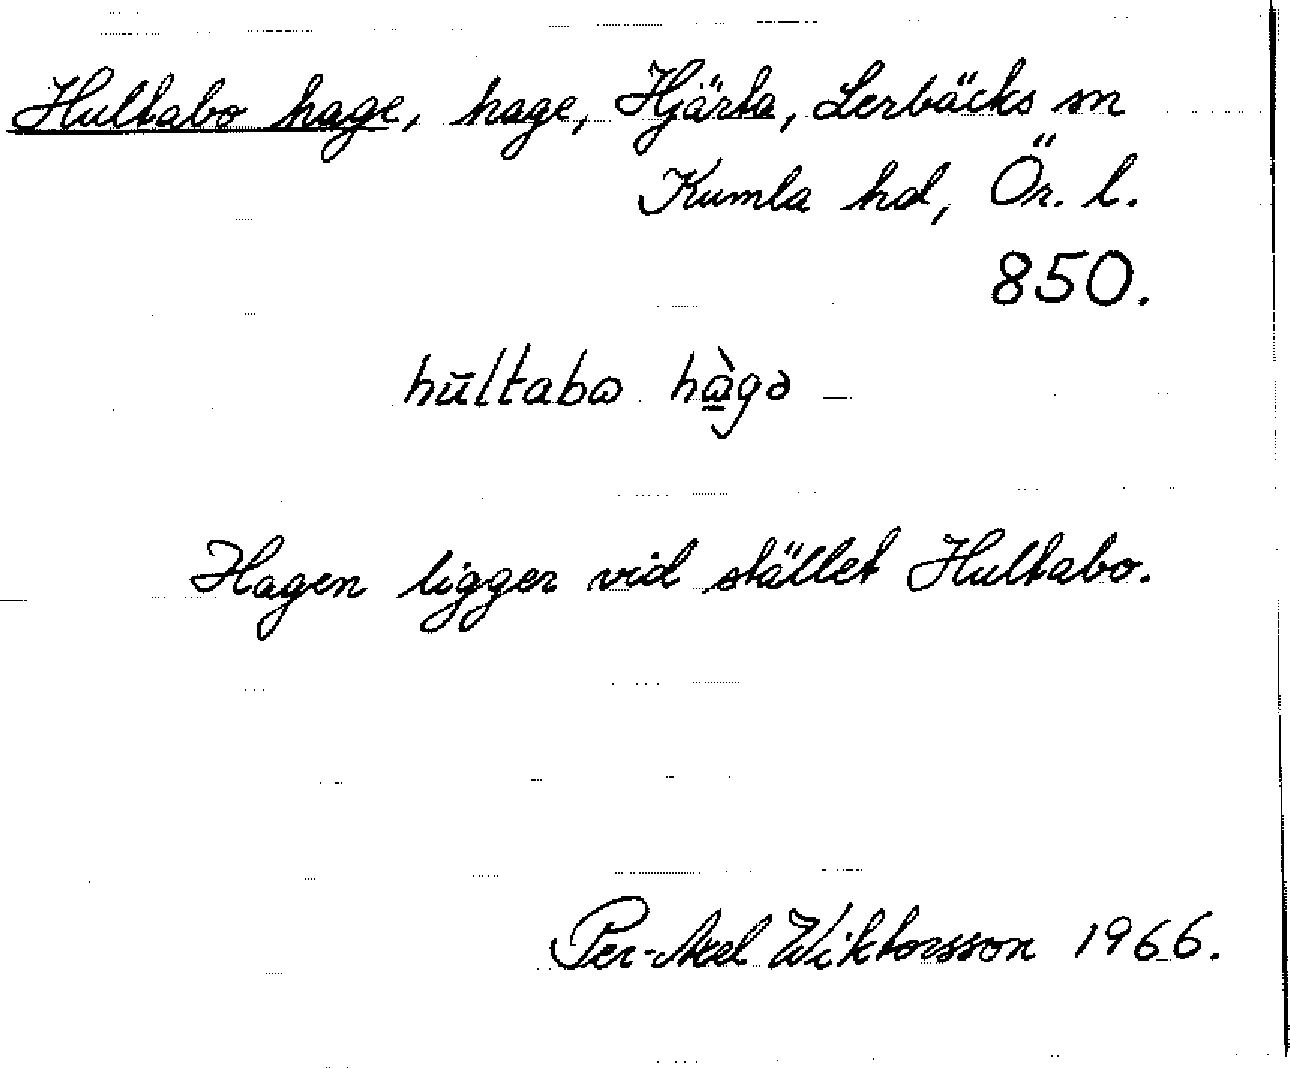 Hultabo hage, hage, Hjärta, Lerbäcks sn
Kumla hd, Ör. l.
850.
hūltabɷ hɑ̱̀gə –
Hagen ligger vid stället Hultabo.
Per-Axel Wiktorsson 1966.